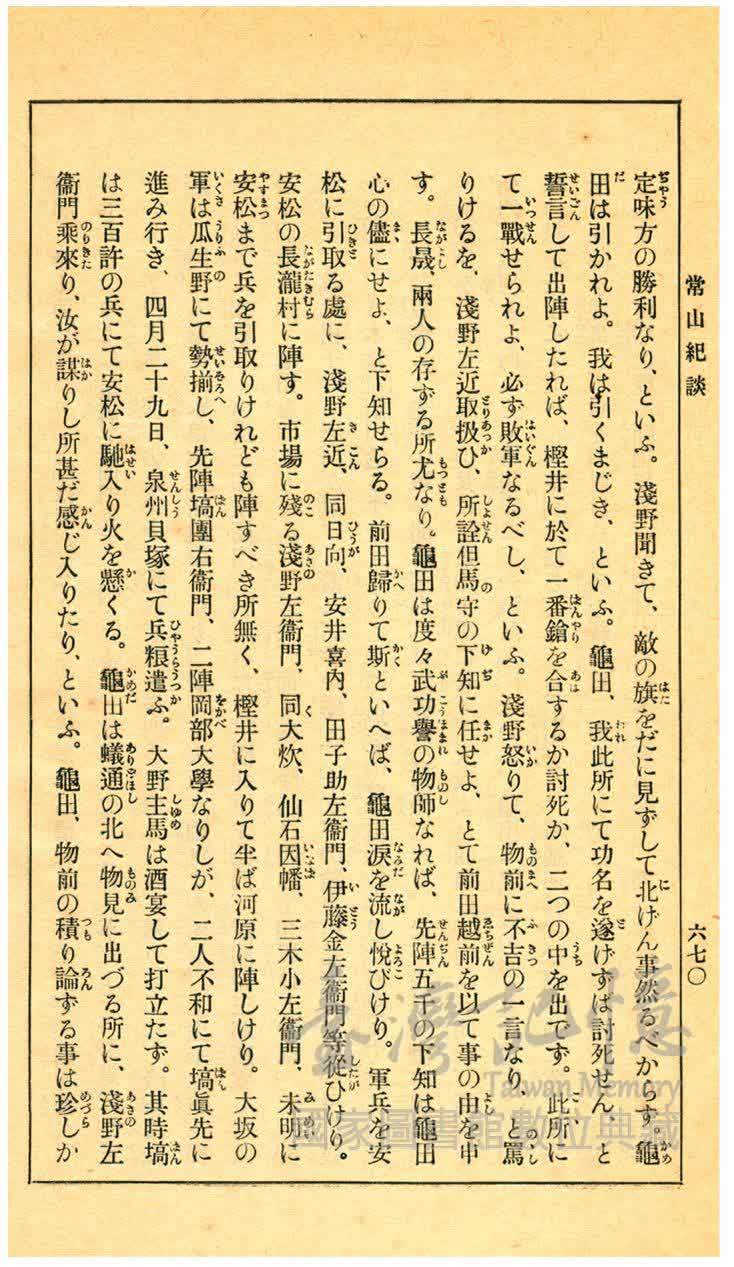 常山紀談
六七〇
定味方の勝利なり、といふ。淺野聞きて、敵の旗をだに見ずして北げん事然るべからず。龜
田は引かれよ。我は引くまじき、といふ。龜田、我此所にて功名を遂げずば討死せん、と
誓言して出陣したれば、樫井に於て一番鎗を合するか討死か、二つの中を出です。此所に
て一戰せられよ、必ず敗軍なるべし、といふ。淺野怒りて、物前に不吉の一言なり、と罵
りけるを、淺野左近取扱ひ、所詮但馬守の下知に任せよ、とて前田越前を以て事の由を申
す。長晟、兩人の存ずる所尤なり。龜田は度々武功譽の物師なれば、先陣五千の下知は龜田
心の儘にせよ、と下知せらる。前田歸りて斯といへば、龜田淚を流し悅びけり。軍兵を安
松に引取る處に、淺野左近、同日向、安井喜內、田子助左衞門、伊藤金左衞門等從ひけり。
安松の長瀧村に陣す。市場に殘る淺野左衞門、同大炊、仙石因幡、三木小左衞門、未明に
安松まで兵を引取りけれども陣すべき所無く、樫井に入りて半ば河原に陣しけり。大坂の
軍は瓜生野にて勢揃し、先陣塙團右衞門、二陣岡部大學なりしが、二人不和にて塙眞先に
進み行き、四月二十九日、泉州貝塚にて兵粮遣ふ。大野主馬は酒宴して打立たず。其時塙
は三百許の兵にて安松に馳入り火を懸くる。龜田は蟻通の北へ物見に出づる所に、淺野左
衞門乘來り、汝が謀りし所甚だ感じ入りたり、といふ。龜田、物前の積り論ずる事は珍しか
臺灣記憶
Taiwan Memory
國家圖書館數位典藏